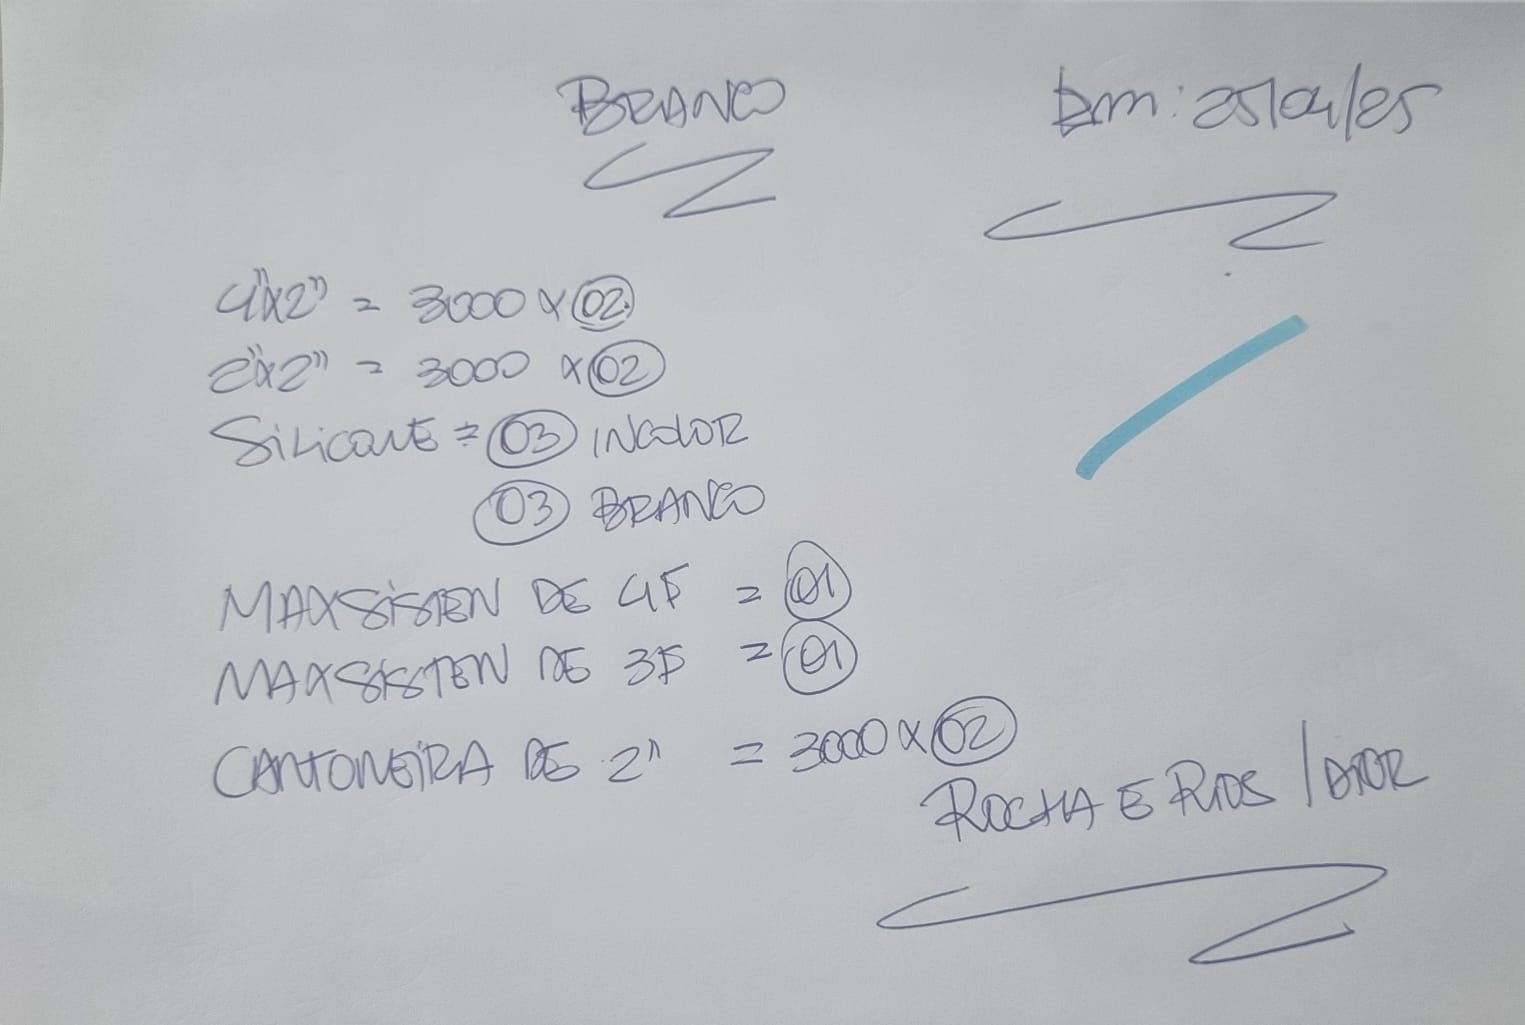 BRANCO
Em: 25/04/25
4"x2" = 3000 x 02
2"x2" = 3000 x 02
SiLicone = 03 INCOLOR
03 BRANCO
MAXSiSTEN DE 4F = 01
MAXSISTEN DE 3F = 01
CANTONEiRA DE 2" = 3000 x 02
ROCHA E RIOS /